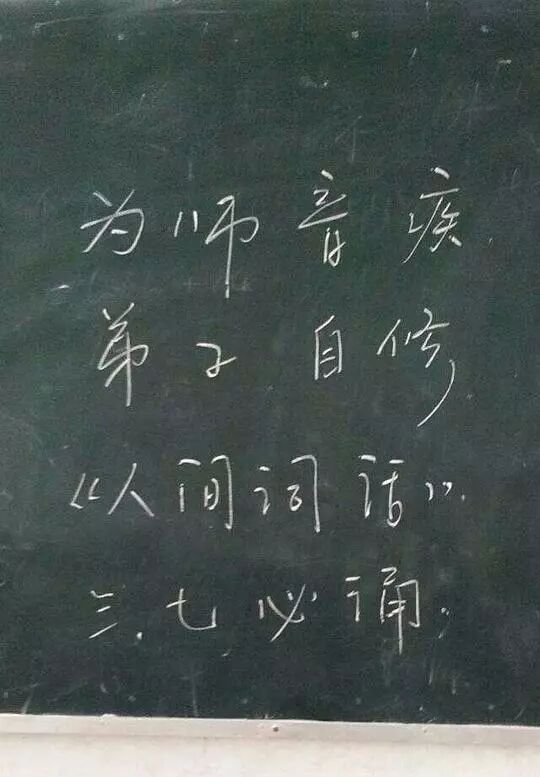 为师音疾
弟子自修
《人间词话》
三.七必诵.